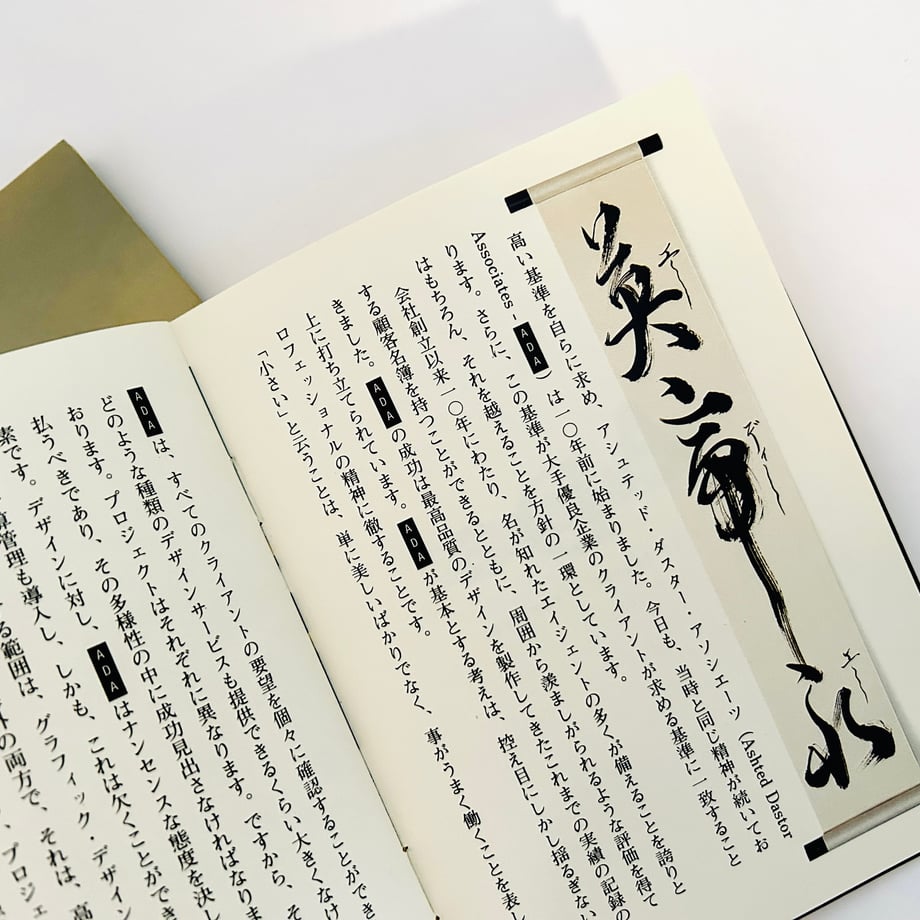 英
エー
ディー
永
エー
高い基準を自らに求め、アシュテッド・ダスター・アソシエーツ（Ashted Dastor
Associates - ADA）は一〇年前に始まりました。今日も、当時と同じ精神が続いてお
ります。さらに、この基準が大手優良企業のクライアントが求める基準に一致すること
はもちろん、それを越えることを方針の一環としています。
会社創立以来一〇年にわたり、名が知れたエイジェントの多くが備えることを誇りと
する顧客名簿を持つことができるとともに、周囲から羨ましがられるような評価を得て
きました。ADAの成功は最高品質のデザインを製作してきたこれまでの実績の記録の
上に打ち立てられています。ADAが基本とする考えは、控え目にしかし揺るぎない
ロフェッショナルの精神に徹することです。
「小さい」と云うことは、単に美しいばかりでなく、事がうまく働くことを表し
ADAは、すべてのクライアントの要望を個々に確認することができ
どのような種類のデザインサービスも提供できるくらい大きくなけ
おります。プロジェクトはそれぞれに異なります。ですから、そ
払うべきであり、その多様性の中に成功見出さなければなりま
素です。デザインに対し、ADAはナンセンスな態度を決し
算管理も導入し、しかも、これは欠くことができ
る範囲は、グラフィック・デザイン
外の両方で、それは、高
、プロジェ